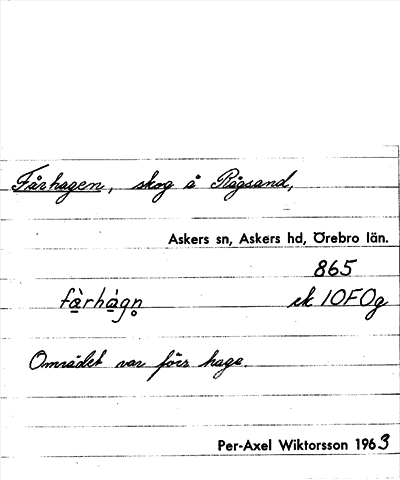 Fårhagen, skog å Rågsand,
Askers sn, Askers hd, Örebro län.
865
fàrhágn̥ ek 10F0g
Området var förr hage.
Per-Axel Wiktorsson 1963